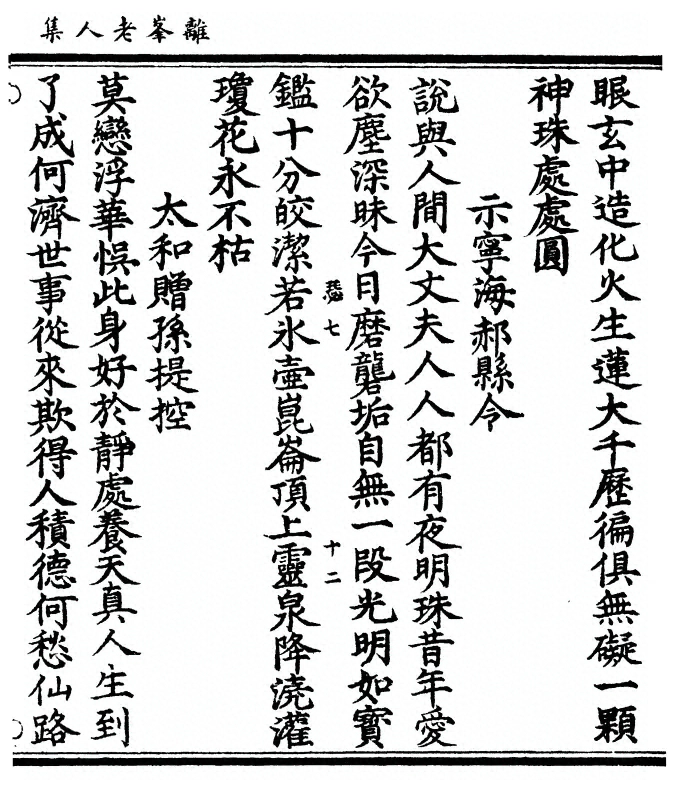 離峯老人集
眼玄中造化火生蓮大千歷徧俱無礙一顆
神珠處處圓
示寧海郝縣令
說與人間大丈夫人人都有夜明珠昔年愛
欲塵深昧今日磨礲垢自無一段光明如寶
七
十二
鑑十分皎潔若氷壺崑崙頂上靈泉降澆灌
瓊花永不枯
太和贈孫提控
莫戀浮華悞此身好於靜處養天真人生到
了成何濟世事從來欺得人積德何愁仙路